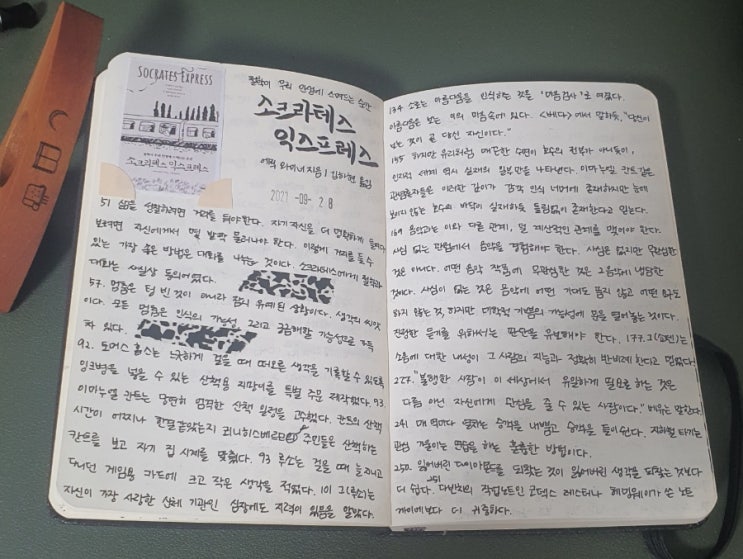 SOCRATES EXPRESS
소크라테스 익스프레스
철학이 우리 인생에 스며드는 순간
소크라테스
익스프레스
에릭 와이너 지음 | 김하현 옮김
2021 -09- 28
51 삶을 성찰하려면 거리를 둬야 한다. 자기 자신을 더 명확하게 들여다
보려면 자신에게서 몇 발짝 물러나야 한다. 이렇게 거리를 둘 수
있는 가장 좋은 방법은 대화를 나누는 것이다. 소크라테스에게 철학과
대화는 사실상 동의어였다.
57. 멈춤은 텅 빈 것이 아니라 잠시 유예된 상황이다. 생각의 씨앗
이다. 모든 멈춤은 인식의 가능성, 그리고 궁금해할 가능성으로 가득
차 있다.
92. 토머스 홉스는 느긋하게 걸을 때 떠오른 생각을 기록할 수 있도록
잉크병을 넣을 수 있는 산책용 지팡이를 특별 주문 제작했다. 93.
이마누엘 칸트는 당연히 엄격한 산책 일정을 고수했다. 칸트의 산책
시간이 어찌나 한결같았는지 쾨니히스베르크 주민들은 산책하는
칸트를 보고 자기 집 시계를 맞췄다. 93 루소는 걸을 때 늘 지니고
다니던 게임용 카드에 크고 작은 생각을 적었다. 101 그(루소)는
자신이 가장 사랑한 신체 기관인 심장에도 지력이 있음을 알았다.
134 소로는 아름다움을 인식하는 것을 '마음검사'로 여겼다.
아름다움은 보는 이의 마음속에 있다. <베다>에서 말하듯, "당신이
보는 것이 곧 당신 자신이다."
155 하지만 유리처럼 매끈한 수면이 호수의 전부가 아니듯이,
인지적 세계 역시 실재의 일부만을 나타낸다. 이마누엘 칸트 같은
관념론자들은 이러한 깊이가 감각 인식 너머에 존재하지만 눈에
보이지 않는 호수의 바닥이 실재하듯 틀림없이 존재한다고 믿는다.
169 음악과는 이와 다른 관계, 덜 계산적인 관계를 맺어야 한다.
사심 없는 관점에서 음악을 경험해야 한다. 사심은 없지만 무관심한
것은 아니다. 어떤 음악 작품에 무관심한 것은 그 음악에 냉담한
것이다. 사심이 없는 것은 음악에 어떤 기대도 품지 않고 어떤 요구도
하지 않는 것, 하지만 미학적 기쁨의 가능성에 몸을 열어놓는 것이다.
진정한 듣기를 위해서는 판단을 유보해야 한다. 177. 그(쇼펜)는
소음에 대한 내성이 그 사람의 지능과 정확히 반비례한다고 믿었다.
227. "불행한 사람이 이 세상에서 유일하게 필요로 하는 것은
다름 아닌 자신에게 관심을 줄 수 있는 사람이다." 베유는 말한다.
241 매 역마다 열차는 승객을 내뱉고 승객을 들이쉰다. 지하철 타기는
관심 기울이는 연습을 하는 훌륭한 방법이다.
250. 잃어버린 다이아몬드를 되찾는 것이 잃어버린 생각을 되찾는 것보다
더 쉽다. 251 다빈치의 작업노트인 코덱스 레스터나 헤밍웨이가 쓴 노트
까이에보다 더 귀중하다.